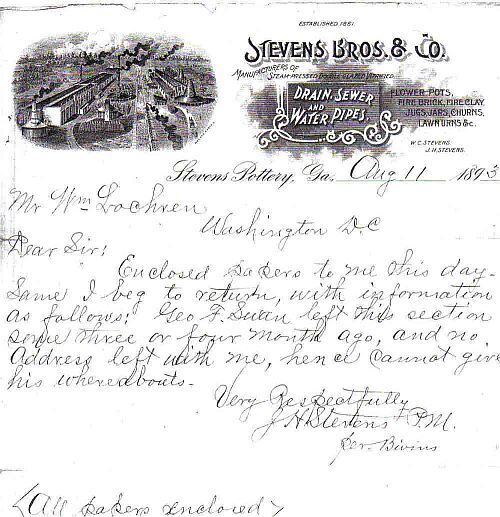 ESTABLISHED 1861.
STEVENS, BROS. & CO.
MANUFACTURERS OF
STEAM-PRESSED DOUBLE GLAZED VITRIFIED
DRAIN, SEWER
AND
WATER PIPES.
FLOWER-POTS,
FIRE BRICK, FIRE CLAY,
JUGS, JARS, CHURNS,
LAWN URNS &c.
W.C. STEVENS.
J.H. STEVENS.
Stevens Pottery, Ga., Aug 11 1893
Mr Wm Lochren
Washington D.C
Dear Sir:
Enclosed papers to me this day.
Same I beg to return, with information
as follows; Geo F. Swan left this section
some three or four month ago, and no
Address left with me, hence cannot give
his whereabouts.
Very Respectfully
J H Stevens P.M.
per. Bivins
(All papers enclosed)